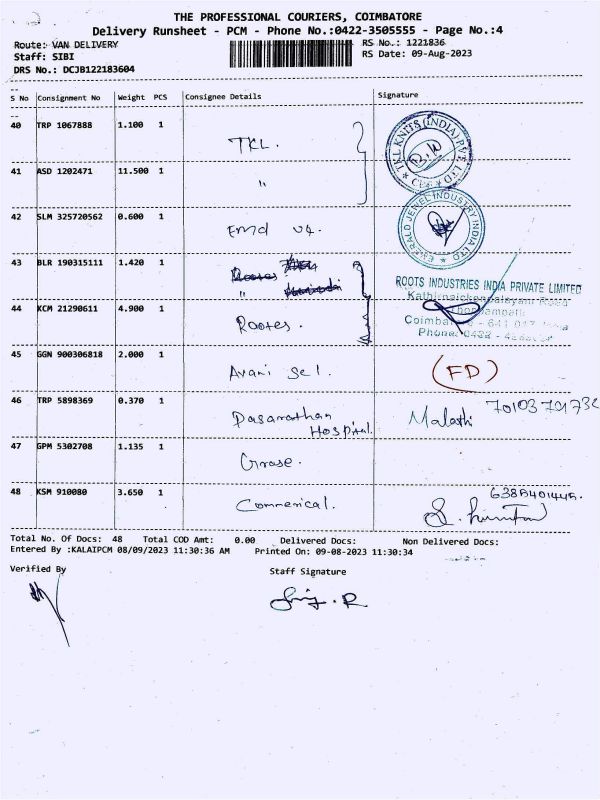 THE PROFESSIONAL COURIERS, COIMBATORE
Delivery Runsheet - PCM - Phone No.:0422-3505555 - Page No.:4
Route: VAN DELIVERY
RS No.: 1221836
Staff: SIBI
RS Date: 09-Aug-2023
DRS No.: DCJB122183604
S No Consignment No Weight PCS Consignee Details Signature
40 TRP 1067888 1.100 1 TKL.
TKL KNITS (INDIA) PVT LTD
41 ASD 1202471 11.500 1 "
42 SLM 325720562 0.600 1 Emd
EMERALD JEWEL INDUSTRY INDIA LTD
43 BLR 190315111 1.420 1 "
ROOTS INDUSTRIES INDIA PRIVATE LIMITED
44 KCM 21290611 4.900 1 Rootes.
45 GGN 900306818 2.000 1 Avani Sel. (FD)
46 TRP 5898369 0.370 1 Dasarathan Hospital. Malathi
47 GPM 5302708 1.135 1
48 KSM 910080 3.650 1 Commerical.
Total No. Of Docs: 48 Total COD Amt: 0.00 Delivered Docs: Non Delivered Docs:
Entered By :KALAIPCM 08/09/2023 11:30:36 AM Printed On: 09-08-2023 11:30:34
Verified By Staff Signature